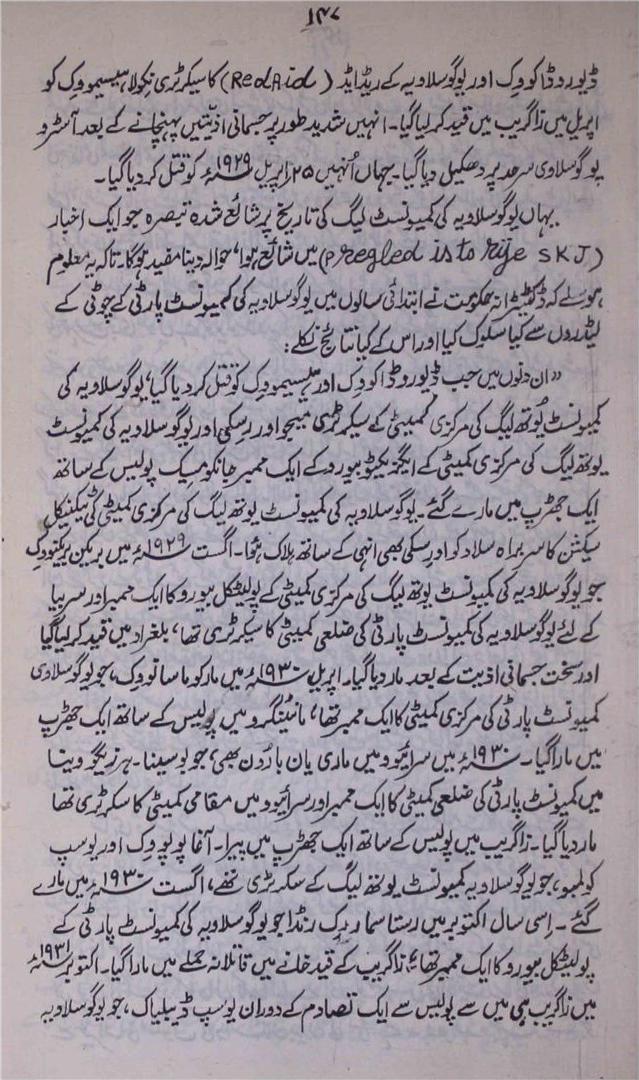 ۱۴۸
ڈیوروڈاکووک اور یوگوسلاویہ کے ریڈایڈ (Red Aid) کا سیکرٹری نکولا ہیسیمووک کو
اپریل میں زاگریب میں قید کر لیا گیا۔ انہیں شدید طور پر جسمانی اذیتیں پہنچانے کے بعد آسٹرو
یوگوسلاوی سرحد پر دھکیل دیا گیا۔ یہاں اُنہیں ۲۵ اپریل ۱۹۲۹ء کو قتل کر دیا گیا۔
یہاں یوگوسلاویہ کی کمیونسٹ لیگ کی تاریخ پر شائع شدہ تبصرہ جو ایک اخبار
(Pregled istorije SKJ) میں شائع ہوا، حوالہ دینا مفید ہوگا۔ تاکہ یہ معلوم
ہو سکے کہ ڈکٹیٹرانہ حکومت نے ابتدائی سالوں میں یوگوسلاویہ کی کمیونسٹ پارٹی کے چوٹی کے
لیڈروں سے کیا سلوک کیا اور اس کے کیا نتائج نکلے:
"ان دنوں میں جب ڈیوروڈاکووک اور ہیسیمووک کو قتل کر دیا گیا، یوگوسلاویہ کی
کمیونسٹ یُوتھ لیگ کی مرکزی کمیٹی کے سیکرٹری میجو اور رسکی اور یوگوسلاویہ کی کمیونسٹ
یوتھ لیگ کی مرکزی کمیٹی کے ایگزیکٹو بیورو کے ایک ممبر جانکو مسیک پولیس کے ساتھ
ایک جھڑپ میں مارے گئے۔ یوگوسلاویہ کی کمیونسٹ یوتھ لیگ کی مرکزی کمیٹی کی ٹیکنیکل
سیکشن کا سربراہ سلادکو اور سکی بھی انہی کے ساتھ ہلاک ہوا۔ اگست ۱۹۲۹ء میں بریکن
جو یوگوسلاویہ کی کمیونسٹ یوتھ لیگ کی مرکزی کمیٹی کے پولیٹیکل بیورو کا ایک ممبر اور سربیا
کے لئے یوگوسلاویہ کی کمیونسٹ پارٹی کی ضلعی کمیٹی کا سیکرٹری تھا، بلغراد میں قید کر لیا گیا
اور سخت جسمانی اذیت کے بعد مار دیا گیا۔ اپریل ۱۹۳۰ء میں مارکو ماسانووک، جو یوگوسلاوی
کمیونسٹ پارٹی کی مرکزی کمیٹی کا ایک ممبر تھا، مانٹینگرو میں پولیس کے ساتھ ایک جھڑپ
میں مارا گیا۔ ۱۹۳۰ء میں سرائیوو میں ماری یان باروُن بھی، جو بوسینا۔ ہرزیگو وینا
میں کمیونسٹ پارٹی کی ضلعی کمیٹی کا ایک ممبر اور سرائیوو میں مقامی کمیٹی کا سکرٹری تھا
مار دیا گیا۔ زاگریب میں پولیس کے ساتھ ایک جھڑپ میں پیرا۔ آغا پوپووک اور یوسپ
کولمبو، جو یوگوسلاویہ کمیونسٹ یوتھ لیگ کے سکرٹری تھے، اگست ۱۹۳۰ء میں مارے
گئے۔ اِسی سال اکتوبر میں رستا سمارڈک رندا جو یوگوسلاویہ کی کمیونسٹ پارٹی کے
پولیٹیکل بیورو کا ایک ممبر تھا، زاگریب کے قید خانے میں قاتلانہ حملے میں مارا گیا۔ اکتوبر ۱۹۳۱ء
میں زاگریب ہی میں سے پولیس سے ایک تصادم کے دوران یوسپ ڈیبلیاک، جو یوگوسلاویہ